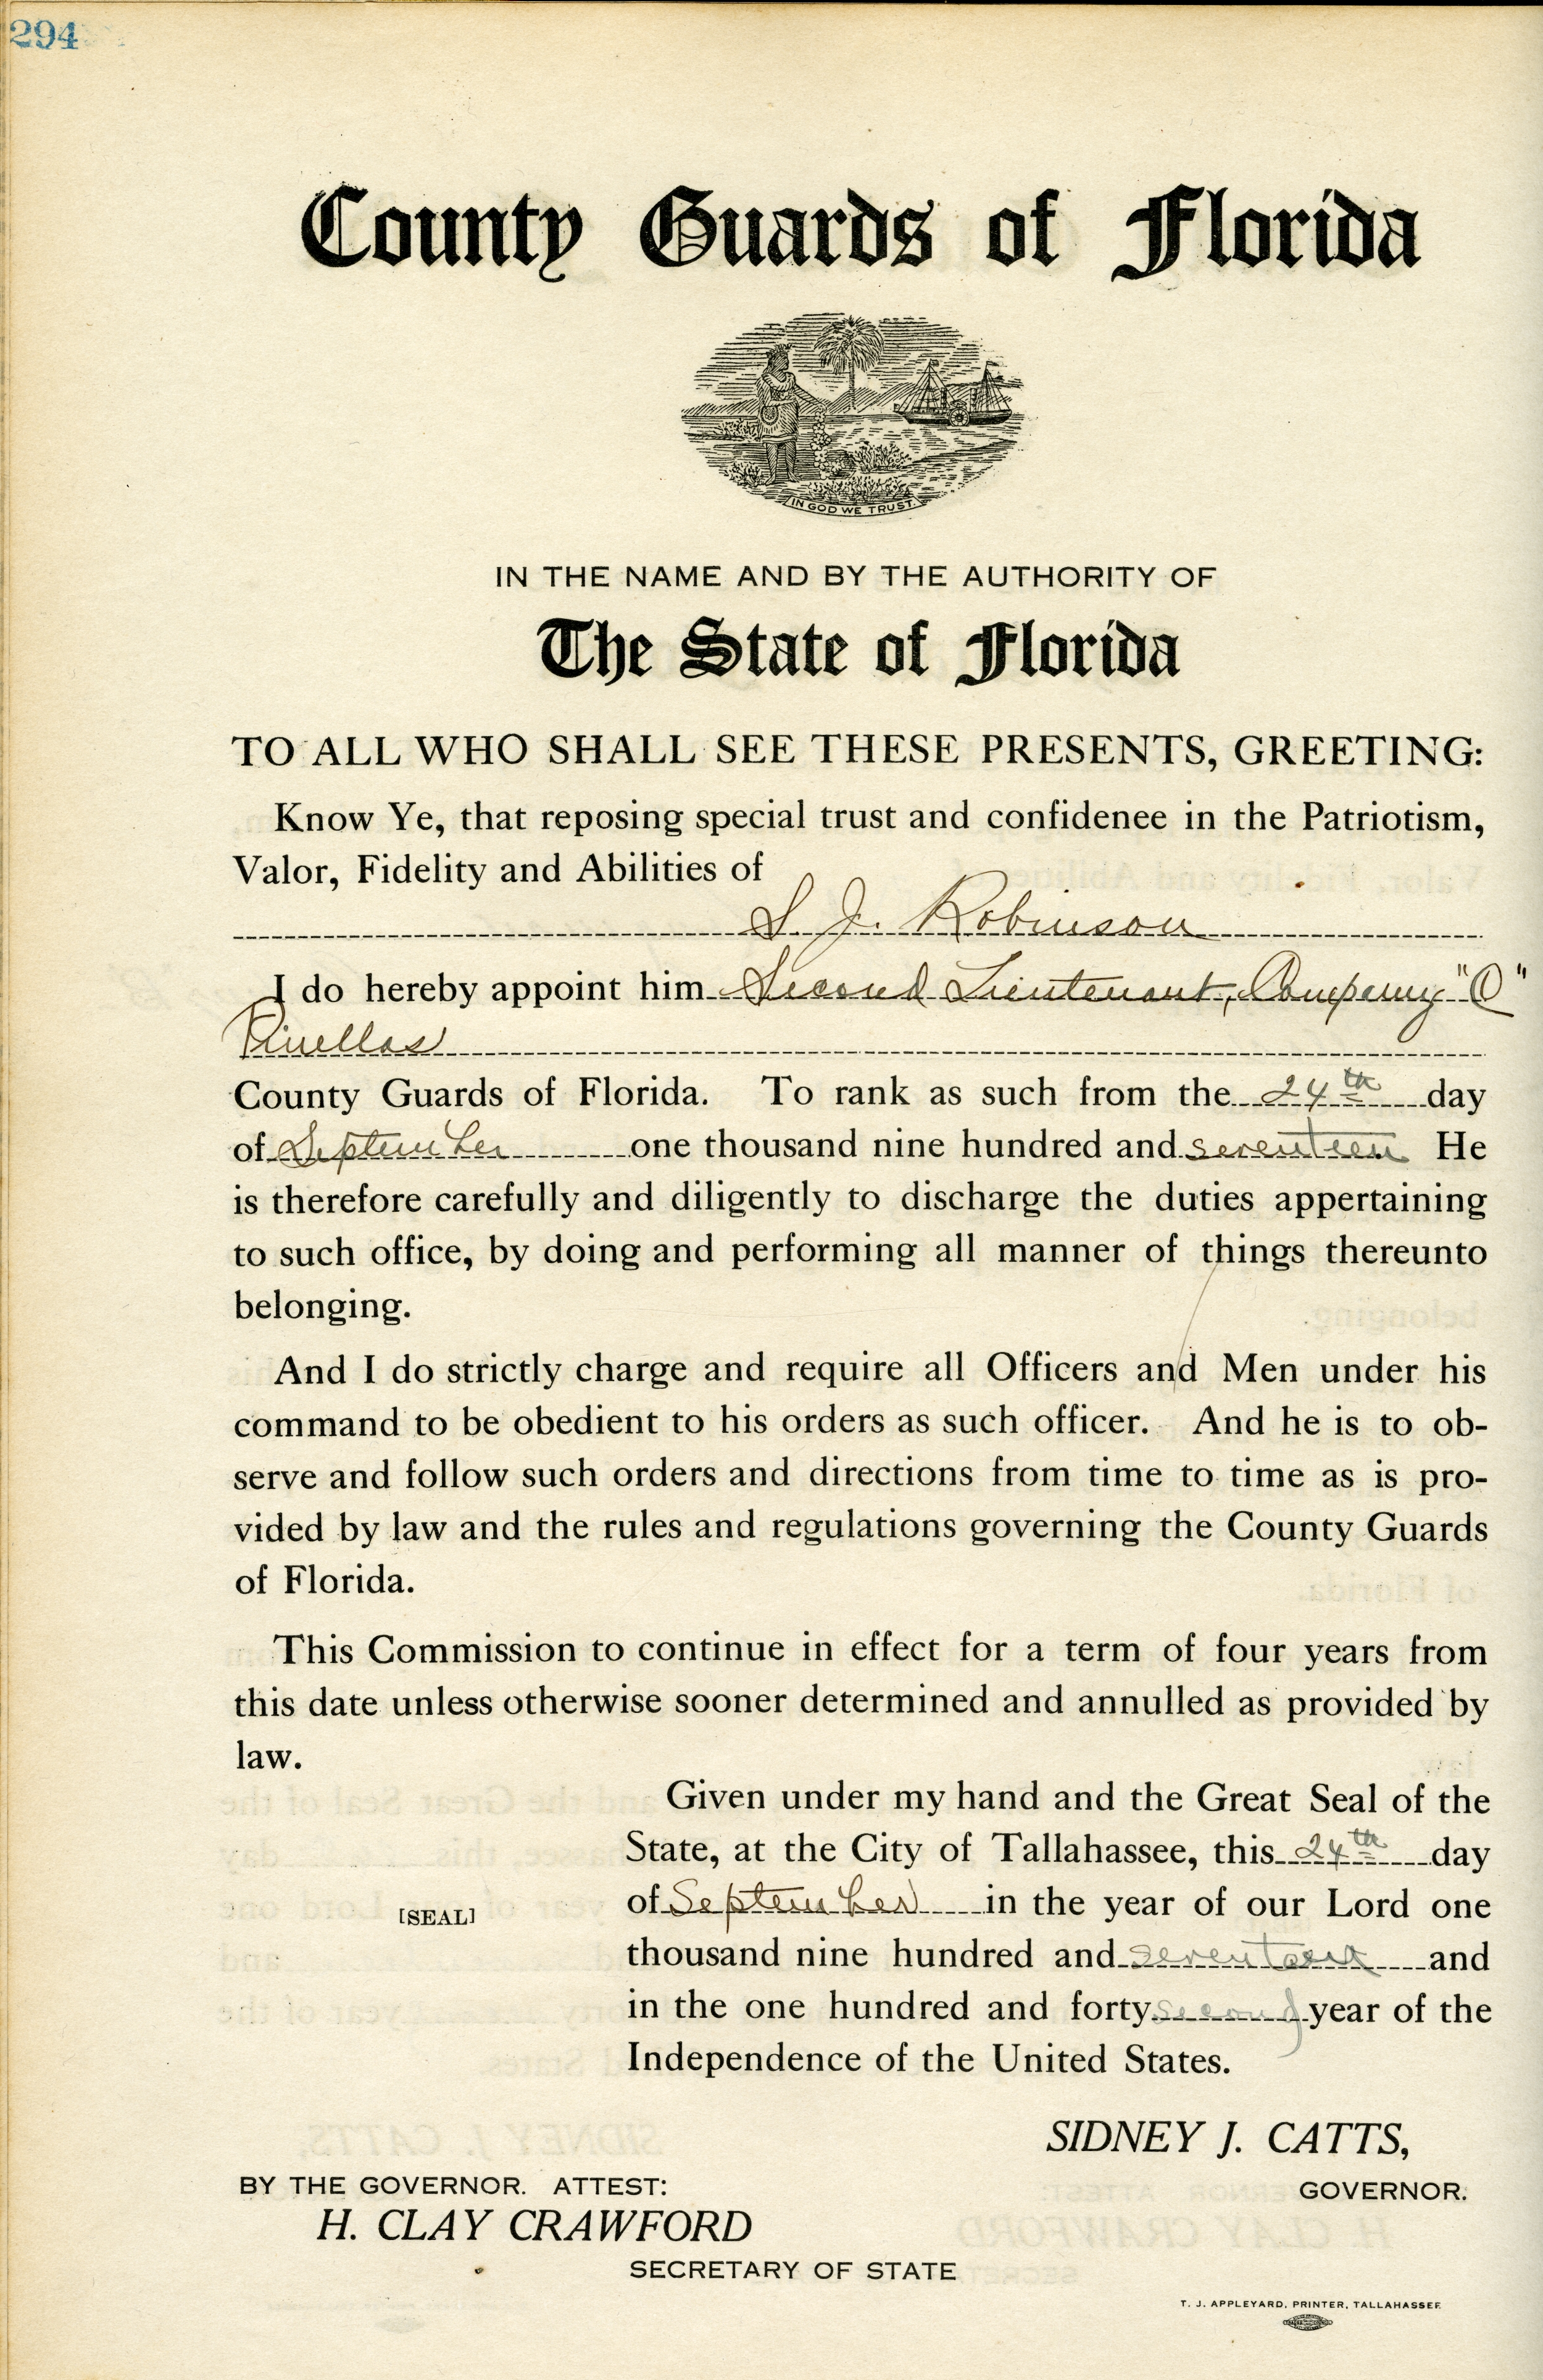 294
County Guards of Florida
IN GOD WE TRUST
IN THE NAME AND BY THE AUTHORITY OF
The State of Florida
TO ALL WHO SHALL SEE THESE PRESENTS, GREETING:
Know Ye, that reposing special trust and confidenee in the Patriotism,
Valor, Fidelity and Abilities of
S. J. Robinson
I do hereby appoint him Second Lieutenant, Company "C"
Pinellas
County Guards of Florida. To rank as such from the 24th day
of September one thousand nine hundred and seventeen He
is therefore carefully and diligently to discharge the duties appertaining
to such office, by doing and performing all manner of things thereunto
belonging.
And I do strictly charge and require all Officers and Men under his
command to be obedient to his orders as such officer. And he is to ob-
serve and follow such orders and directions from time to time as is pro-
vided by law and the rules and regulations governing the County Guards
of Florida.
This Commission to continue in effect for a term of four years from
this date unless otherwise sooner determined and annulled as provided by
law.
Given under my hand and the Great Seal of the
State, at the City of Tallahassee, this 24th day
of September in the year of our Lord one
[SEAL]
thousand nine hundred and seventeen and
in the one hundred and forty second year of the
Independence of the United States.
SIDNEY J. CATTS,
GOVERNOR.
BY THE GOVERNOR. ATTEST:
H. CLAY CRAWFORD
SECRETARY OF STATE
T. J. APPLEYARD, PRINTER, TALLAHASSEE